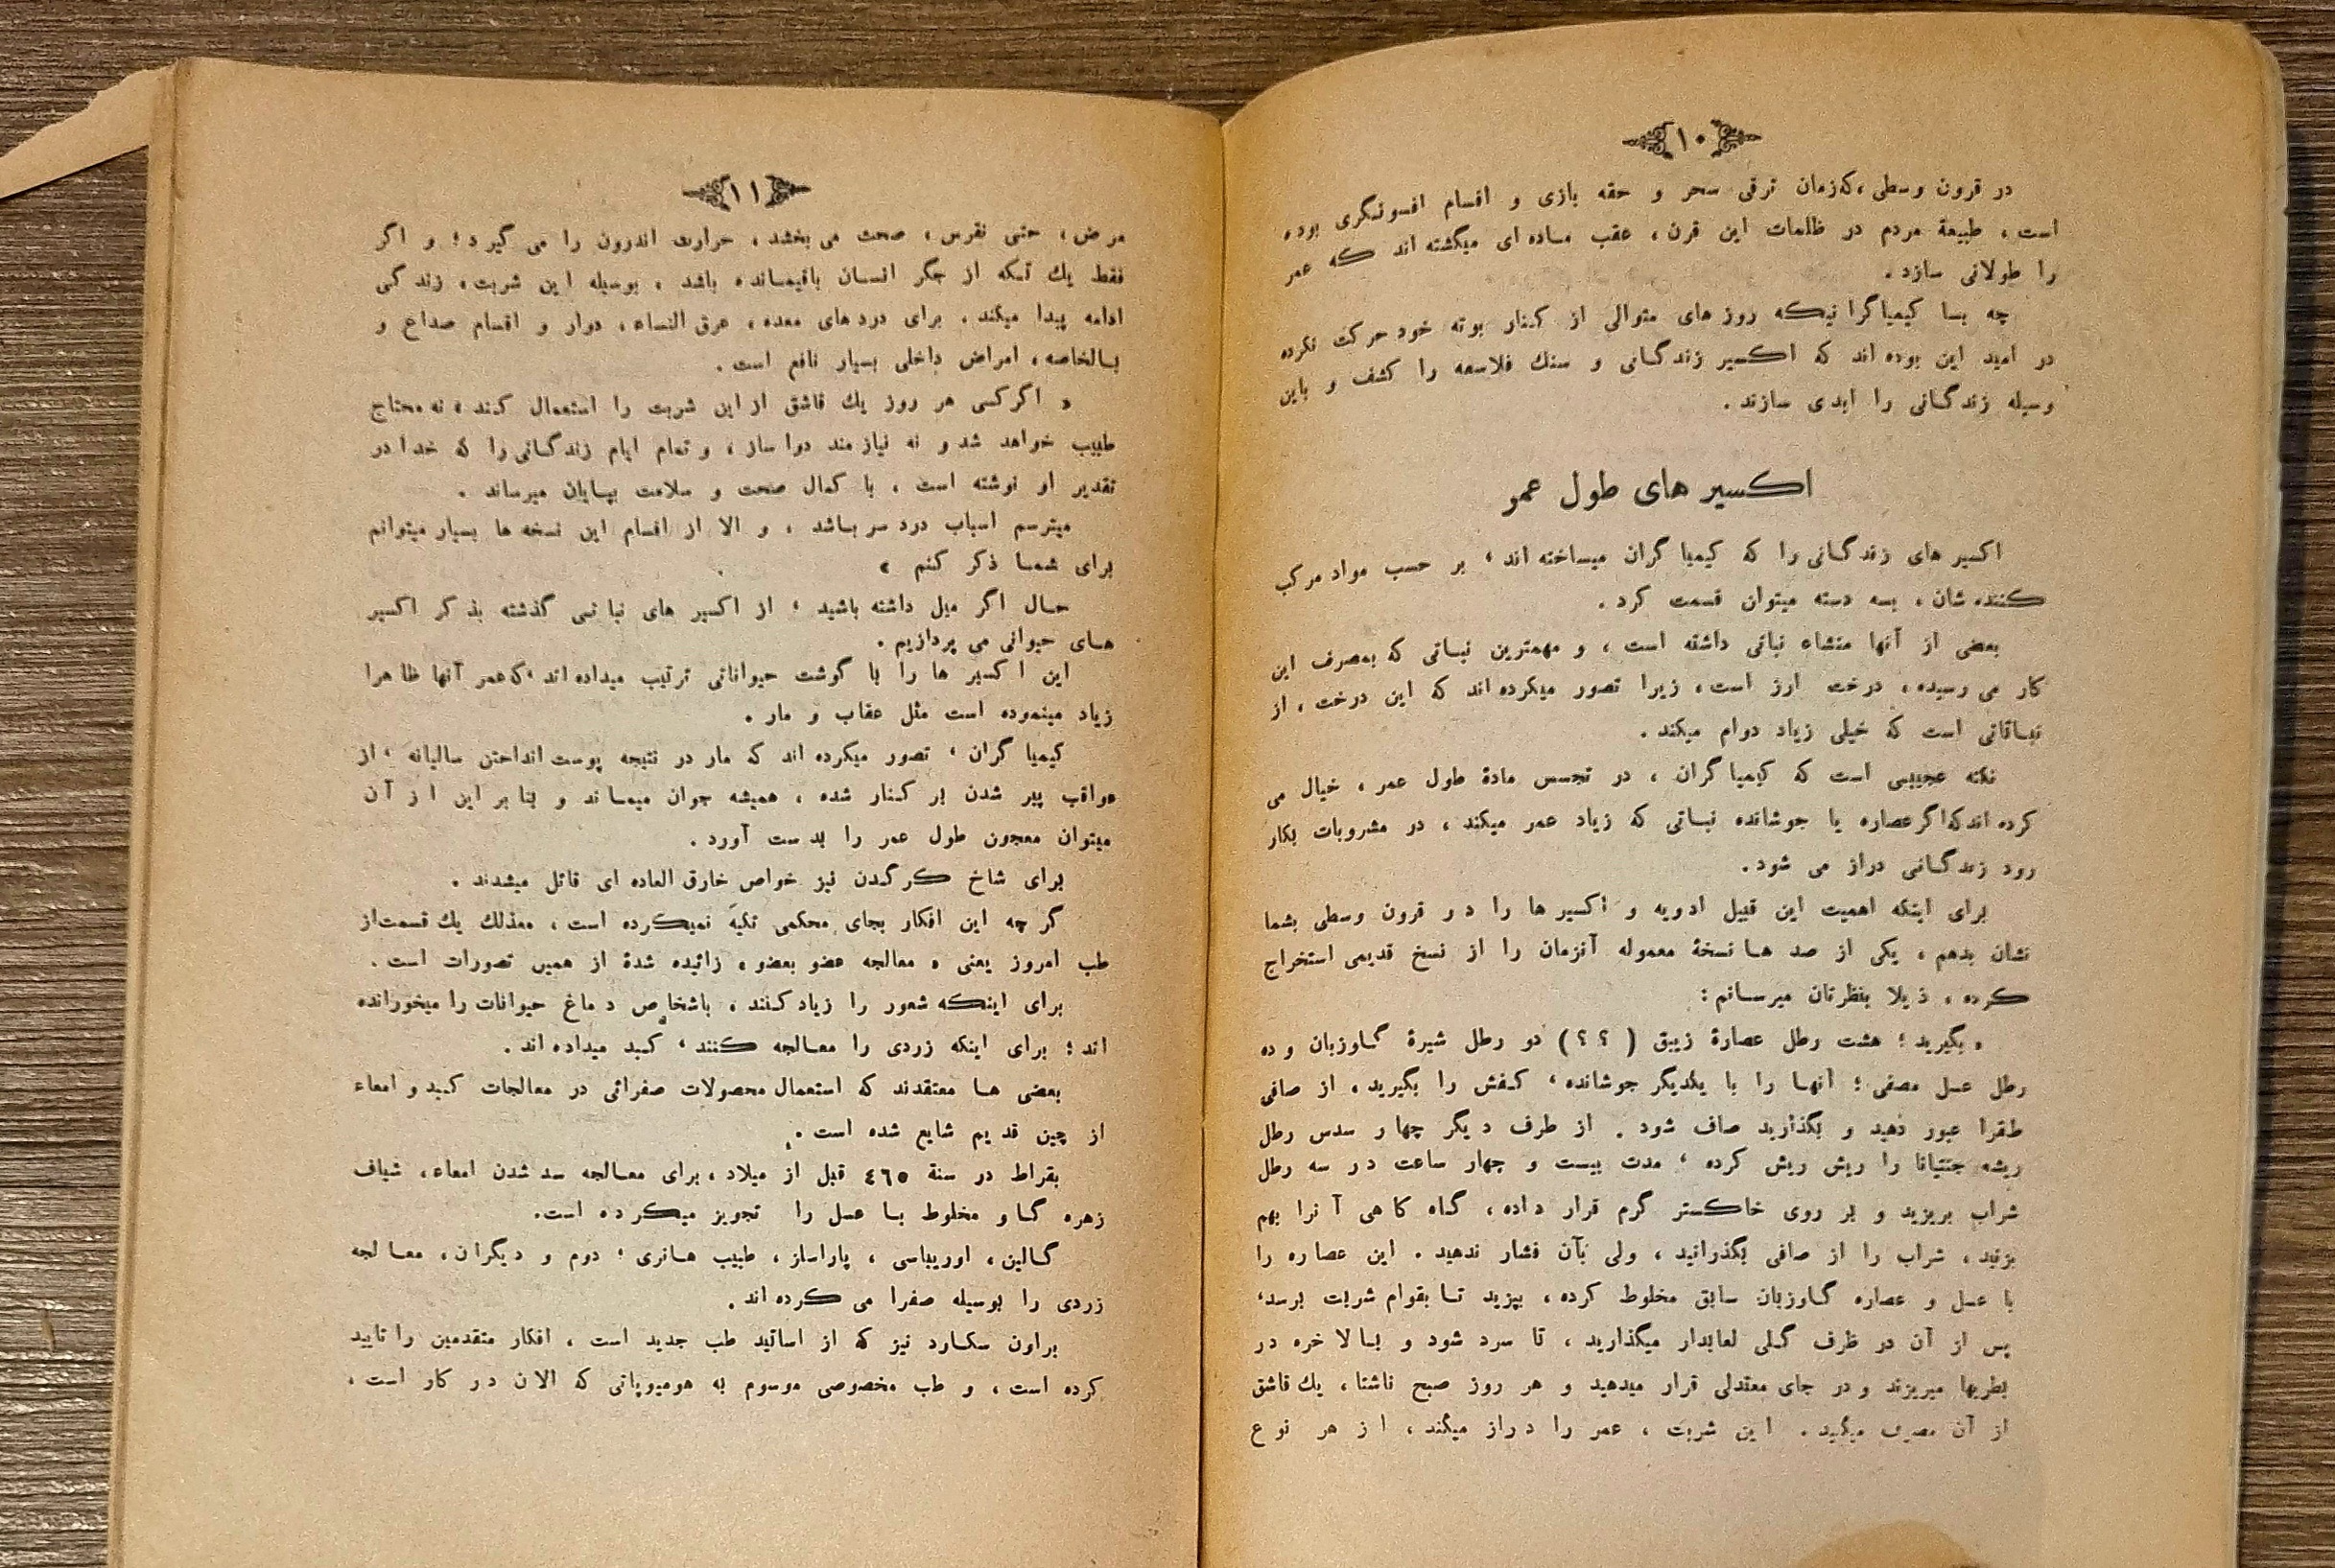 ۱۰
در قرون وسطی، که‌زمان ترقی سحر و حقه بازی و اقسام افسونگری بوده
است، طبیعة مردم در ظلمات این قرن، عقب ماده ای میگشته اند که عمر
را طولانی سازد.
چه بسا کیمیاگرانیکه روز های متوالی از کنار بوته خود حرکت نکرده
در امید این بوده اند که اکسیر زندگانی و سنك فلاسفه را کشف و باین
وسیله زندگانی را ابدی سازند.
اکسیر های طول عمر
اکسیر های زندگانی را که کیمیا گران میساخته اند، بر حسب مواد مرکب
کننده شان، بسه دسته میتوان قسمت کرد.
بعضی از آنها منشاء نباتی داشته است، و مهمترین نباتی که بمصرف این
کار می رسیده، درخت ارز است، زیرا تصور میکرده اند که این درخت، از
نباتاتی است که خیلی زیاد دوام میکند.
نکته عجیبی است که کیمیا گران، در تجسس مادۀ طول عمر، خیال می
کرده اند که اگر عصاره یا جوشانده نباتی که زیاد عمر میکند، در مشروبات بکار
رود زندگانی دراز می شود.
برای اینکه اهمیت این قبیل ادویه و اکسیر ها را در قرون وسطی بشما
نشان بدهم، یکی از صد ها نسخۀ معموله آنزمان را از نسخ قدیمی استخراج
کرده، ذیلا بنظرتان میرسانم:
« بگیرید؛ هشت رطل عصارۀ زیبق (؟؟) دو رطل شیرۀ گاوزبان و ده
رطل عسل مصفی؛ آنها را با یکدیگر جوشانده، کفش را بگیرید، از صافی
طقرا عبور دهید و بگذارید صاف شود. از طرف دیگر چهار سدس رطل
ریشه جنتیانا را ریش ریش کرده، مدت بیست و چهار ساعت در سه رطل
شراب بریزید و بر روی خاکستر گرم قرار داده، گاه گاهی آنرا بهم
بزنید، شراب را از صافی بگذرانید، ولی بآن فشار ندهید. این عصاره را
با عسل و عصاره گاوزبان سابق مخلوط کرده، بپزید تا بقوام شربت برسد،
پس از آن در ظرف گلی لعابدار میگذارید، تا سرد شود و بالاخره در
بطریها میریزند و در جای معتدلی قرار میدهید و هر روز صبح ناشتا، یك قاشق
از آن مصرف میکنید. این شربت، عمر را دراز میکند، از هر نوع
۱۱
مرض، حتی نقرس، صحت می بخشد، حرارت اندرون را می گیرد؛ و اگر
فقط یك تکه از جگر انسان باقیمانده باشد، بوسیله این شربت، زندگی
ادامه پیدا میکند. برای درد های معده، عرق النساء، دوار و اقسام صداع و
بالخاصه، امراض داخلی بسیار نافع است.
« اگر کسی هر روز یك قاشق از این شربت را استعمال کند، نه محتاج
طبیب خواهد شد و نه نیاز مند دوا ساز، و تمام ایام زندگانی را که خدا در
تقدیر او نوشته است، با کمال صحت و سلامت بپایان میرساند.
میترسم اسباب درد سر باشد، و الا از اقسام این نسخه ها بسیار میتوانم
برای شما ذکر کنم »
حال اگر میل داشته باشید، از اکسیر های نباتی گذشته بذکر اکسیر
های حیوانی می پردازیم.
این اکسیر ها را با گوشت حیواناتی ترتیب میداده اند، که عمر آنها ظاهرا
زیاد مینموده است مثل عقاب و مار.
کیمیا گران، تصور میکرده اند که مار در نتیجه پوست انداختن سالیانه، از
عواقب پیر شدن بر کنار شده، همیشه جوان میماند و بنا بر این از آن
میتوان معجون طول عمر را بدست آورد.
برای شاخ کرگدن نیز خواص خارق العاده ای قائل میشدند.
گر چه این افکار بجای محکمی تکیه نمیکرده است، معذلك یك قسمت از
طب امروز یعنی « معالجه عضو بعضو » زائیده شدۀ از همین تصورات است.
برای اینکه شعور را زیاد کنند، باشخاص دماغ حیوانات را میخورانده
اند؛ برای اینکه زردی را معالجه کنند، کبد میداده اند.
بعضی ها معتقدند که استعمال محصولات صفرائی در معالجات کبد و امعاء
از چین قدیم شایع شده است.
بقراط در سنۀ ٤٦٥ قبل از میلاد، برای معالجه سد شدن امعاء، شیاف
زهره گاو مخلوط با عسل را تجویز میکرده است.
گالین، اوریباسی، پاراسلز، طبیب هانری، دوم و دیگران، معالجه
زردی را بوسیله صفرا می کرده اند.
براون سکارد نیز که از اساتید طب جدید است، افکار متقدمین را تایید
کرده است، و طب مخصوصی موسوم به هومیوپاتی که الان در کار است،